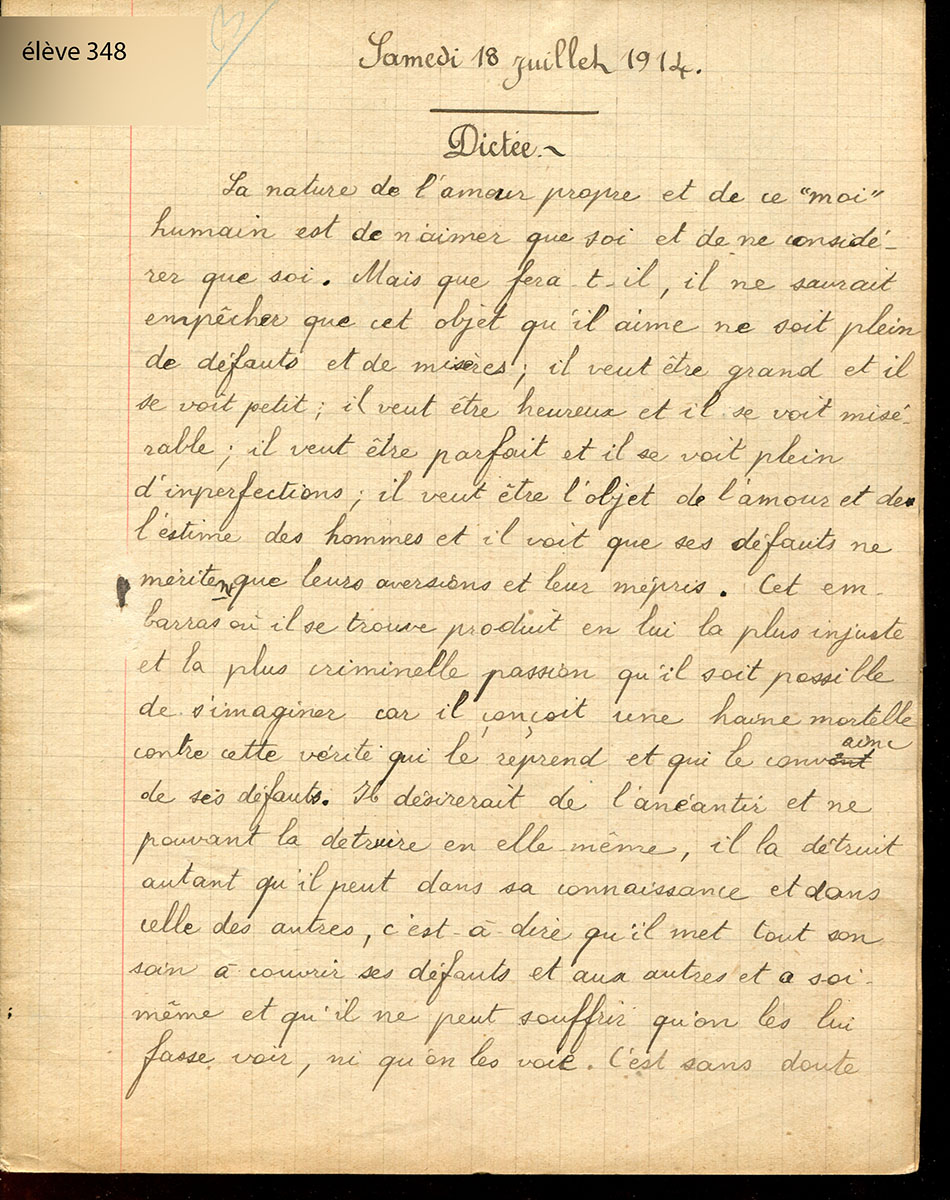 élève 348
Samedi 18 juillet 1914.
Dictée.~
La nature de l'amour propre et de ce "moi"
humain est de n'aimer que soi et de ne considé-
rer que soi. Mais que fera-t-il, il ne saurait
empêcher que cet objet qu'il aime ne soit plein
de défauts et de misères; il veut être grand et il
se voit petit; il veut être heureux et il se voit misé-
rable; il veut être parfait et il se voit plein
d'inperfections; il veut être l'objet de l'amour et de
l'estime des hommes et il voit que ses défauts ne
mériten que leurs aversions et leur mépris. Cet em-
barras où il se trouve produit en lui la plus injuste
et la plus criminelle passion qu'il soit possible
de s'imaginer car il conçoit une haine mortelle
contre cette vérité qui le reprend et qui le convainc
de ses défauts. Il désirerait de l'anéantir et ne
pouvant la détruire en elle-même, il la détruit
autant qu'il peut dans sa connaissance et dans
celle des autres, c'est-à-dire qu'il met tout son
soin à couvrir ses défauts et aux autres et à soi-
même et qu'il ne peut souffrir qu'on les lui
fasse voir, ni qu'on les voie. C'est sans doute